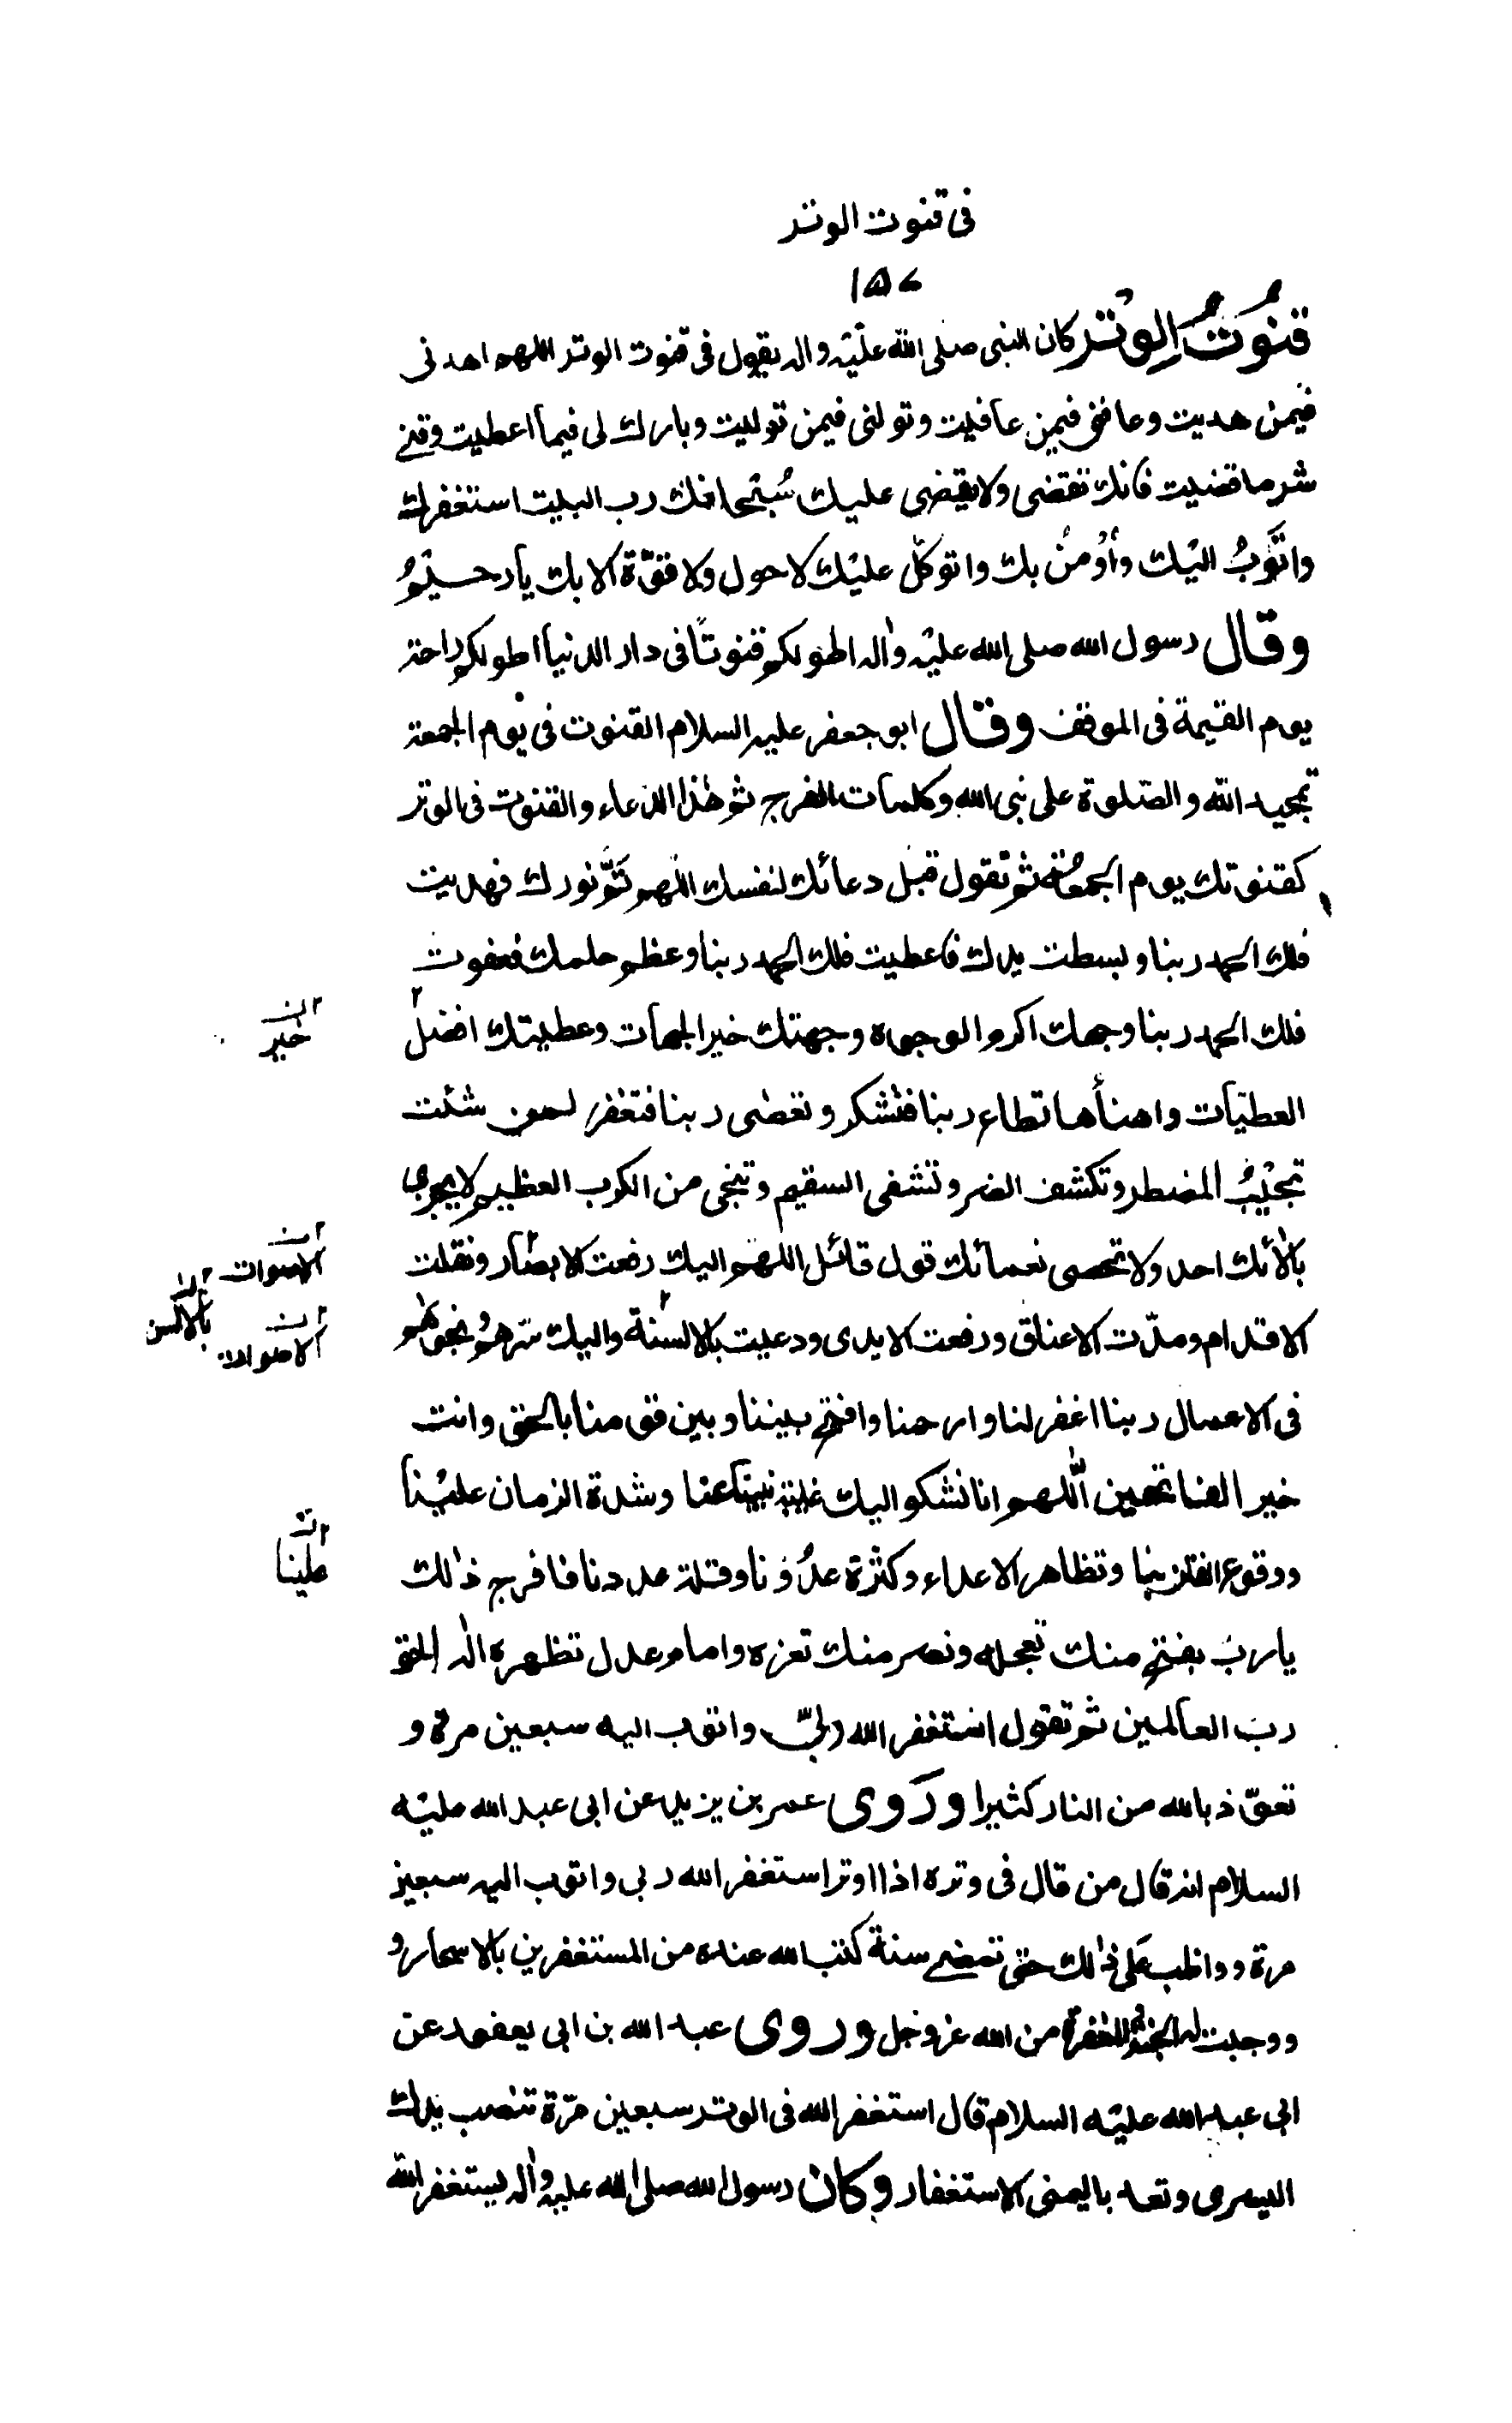 فى قنوت الوتر
١٥٧
قنُوتُ الوتر كان النبى صلى الله عليه واله يقول فى قنوت الوتر اللهم اهدنى
فيمن هديت وعافنى فيمن عافيت وتولنى فيمن توليت وبارك لى فيما اعطيت وقنى
شر ما قضيت فانك تقضى ولا يقضى عليك سُبحانك رب البيت استغفرك
واتوبُ اليك وأومنُ بك واتوكل عليك لا حول ولا قوّة الا بك يا رحيمُ
وقال رسول الله صلى الله عليه واله اطولكم قنوتًا فى دار الدنيا اطولكم راحة
يوم القيمة فى الموقف وقال ابو جعفر عليه السلام القنوت فى يوم الجمعة
تمجيد الله والصلوة على نبى الله وكلمات الفرج ثم هذا الدعاء والقنوت فى الوتر
كقنوتك يوم الجمعة ثم تقول قبل دعائك لنفسك اللهم تَمّ نورك فهديت
فلك الحمد ربنا وبسطت يدك فاعطيت فلك الحمد ربنا وعظم حلمك فعفوت
فلك الحمد ربنا وجهك اكرم الوجوه وجهتك خير الجهات وعطيتك افضل
خير
العطيّات واهنأها تطاع ربنا فتشكر وتعصى ربنا فتغفر لمن شئت
تجيبُ المضطر وتكشف الضر وتشفى السقيم وتنجى من الكرب العظيم لا يجزى
بالائك احد ولا تحصى نعمائك قول قائل اللهم اليك رفعت الابصار ونقلت
الاصوات
الاقدام ومدّت الاعناق ورفعت الايدى ودعيت بالالسنة واليك سرهم ونجواهم
بالالسن
الاصوات
فى الاعمال ربنا اغفر لنا وارحمنا وافتح بيننا وبين قومنا بالحق وانت
خير الفاتحين اللهم انا نشكو اليك غيبة نبينا عنا وشدة الزمان عليُنا
ووقوع الفتن بنا وتظاهر الاعداء وكثرة عدُوّنا وقلة عددنا فافرج ذلك
علينا
يا رب بفتح منك تعجله ونصر منك تعزه وامام عدل تظهره اله الحق
رب العالمين ثم تقول استغفر الله ربى واتوب اليه سبعين مرة و
تعوّذ بالله من النار كثيرا وروى عمر بن يزيد عن ابى عبد الله عليه
السلام انه قال من قال فى وتره اذا اوتر استغفر الله ربى واتوب اليه سبعين
مرة وواظب على ذلك حتى تمضى سنة كتبه الله عنده من المستغفرين بالاسحار و
ووجبت له الجنة والمغفرة من الله عز وجل وروى عبد الله بن ابى يعفور عن
ابى عبد الله عليه السلام قال استغفر الله فى الوتر سبعين مرّة تنصب يدك
اليسرى وتعد باليمنى الاستغفار وكان رسول الله صلى الله عليه واله يستغفر الله